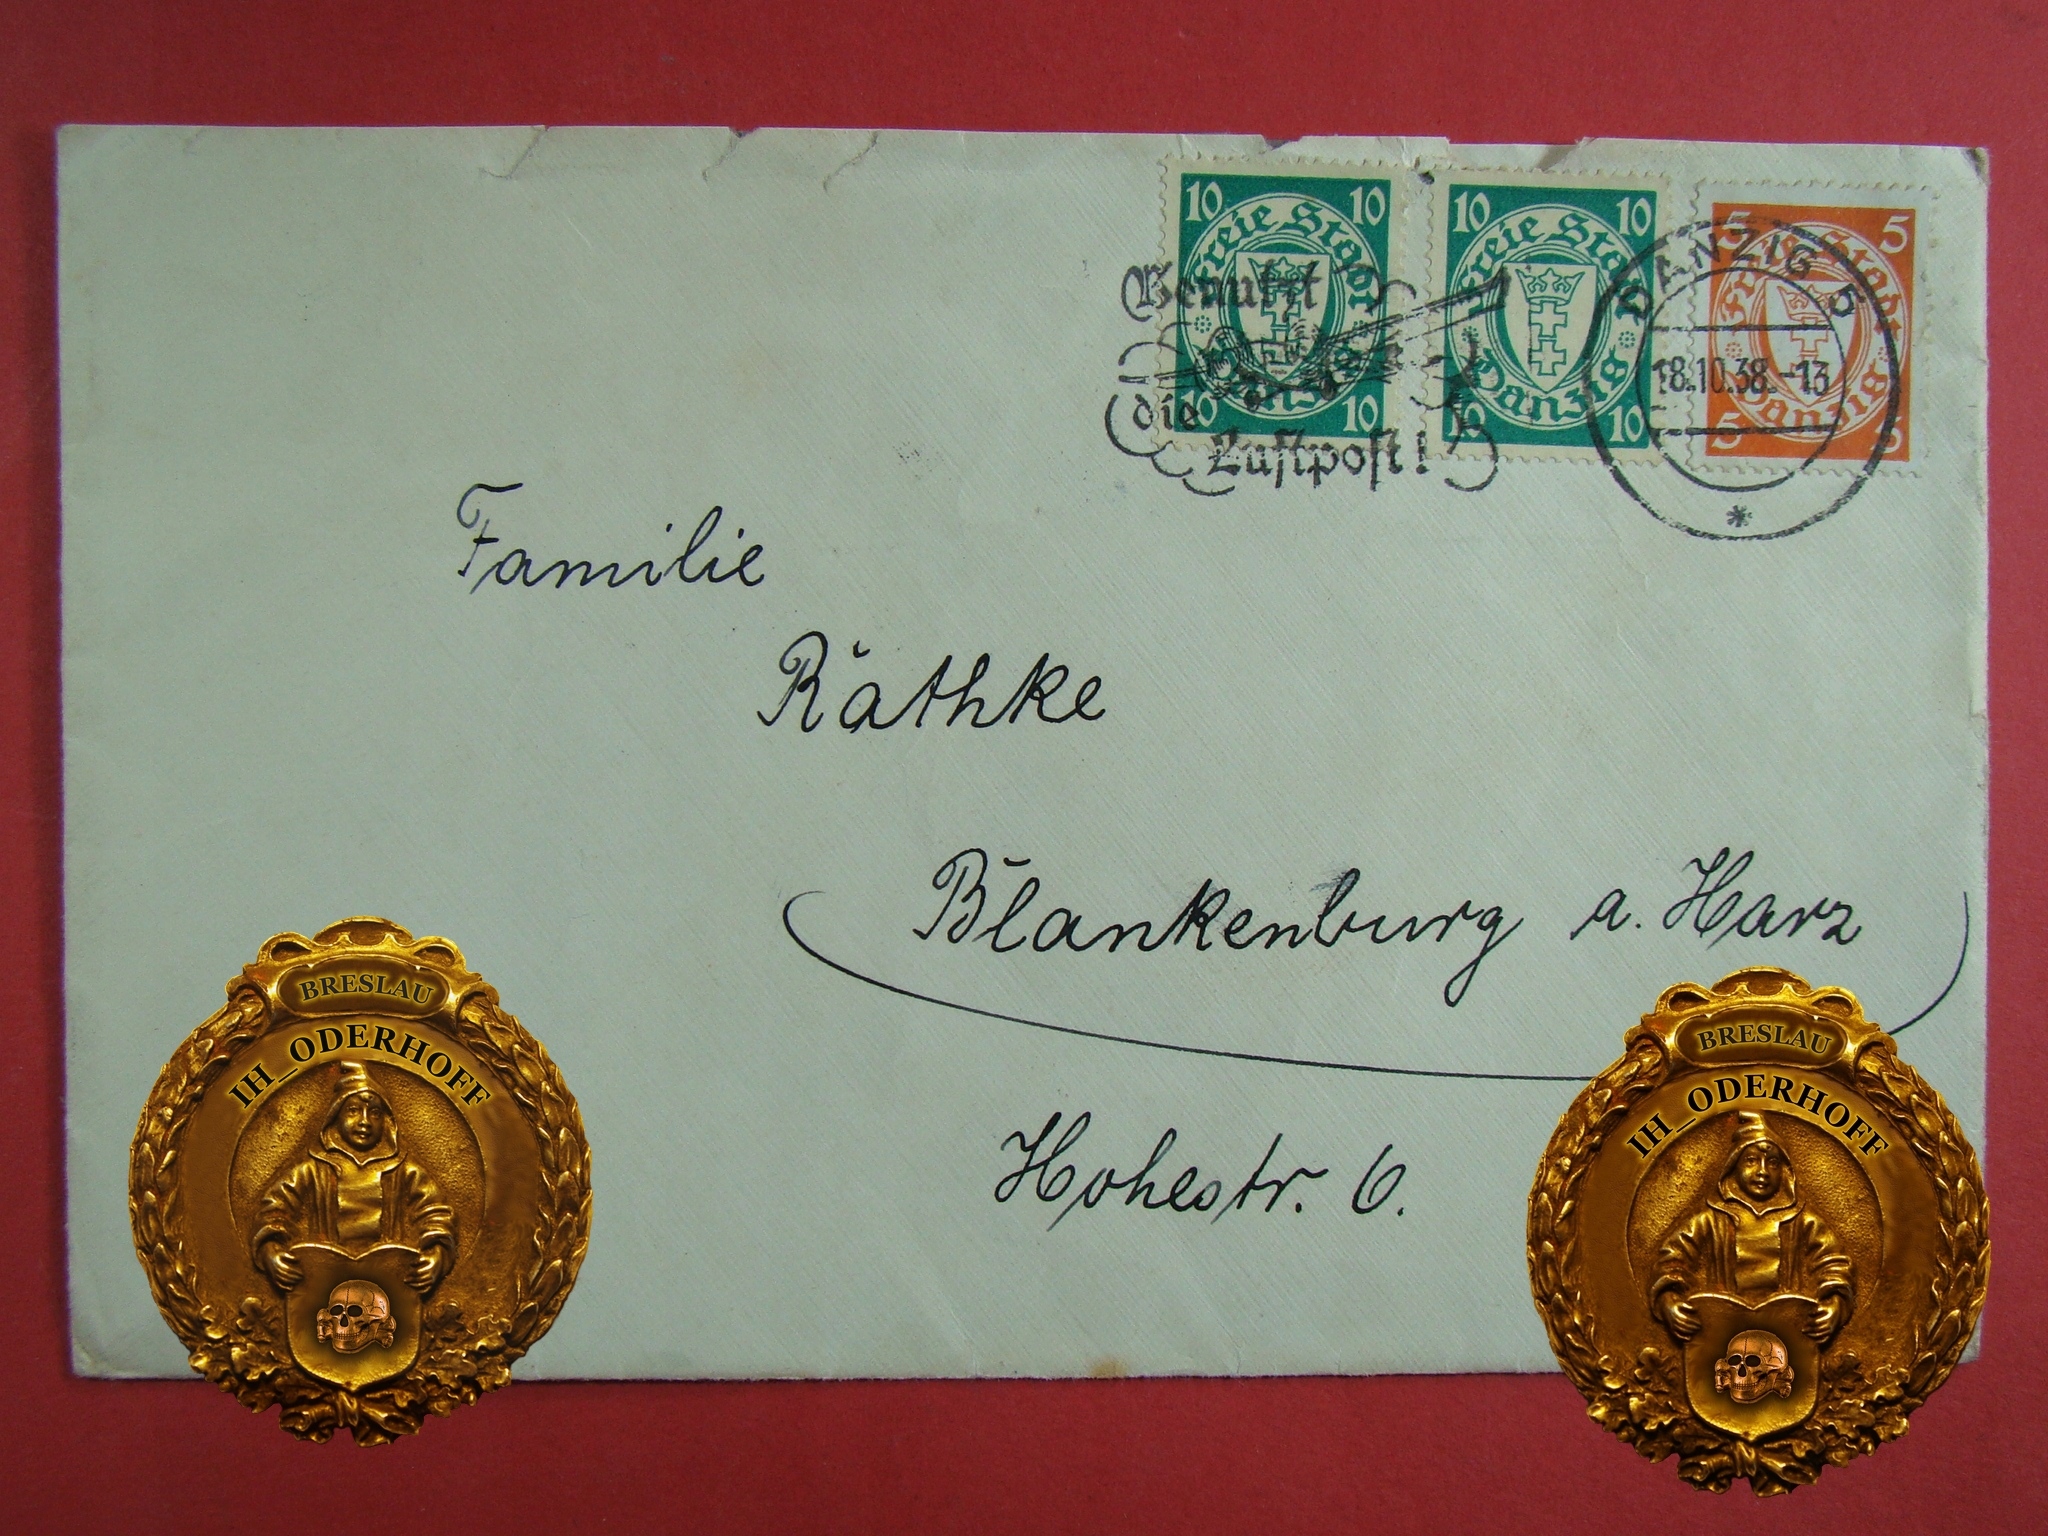 10 10
Freie Stadt
Danzig
10 10
10 10
Freie Stadt
Danzig
10 10
5 5
Freie Stadt
Danzig
5 5
Benutzt
die
Luftpost!
DANZIG 5
18.10.38.-13
*
Familie
Räthke
Blankenburg a. Harz
Hohestr. 6.
BRESLAU
IH_ODERHOFF
BRESLAU
IH_ODERHOFF